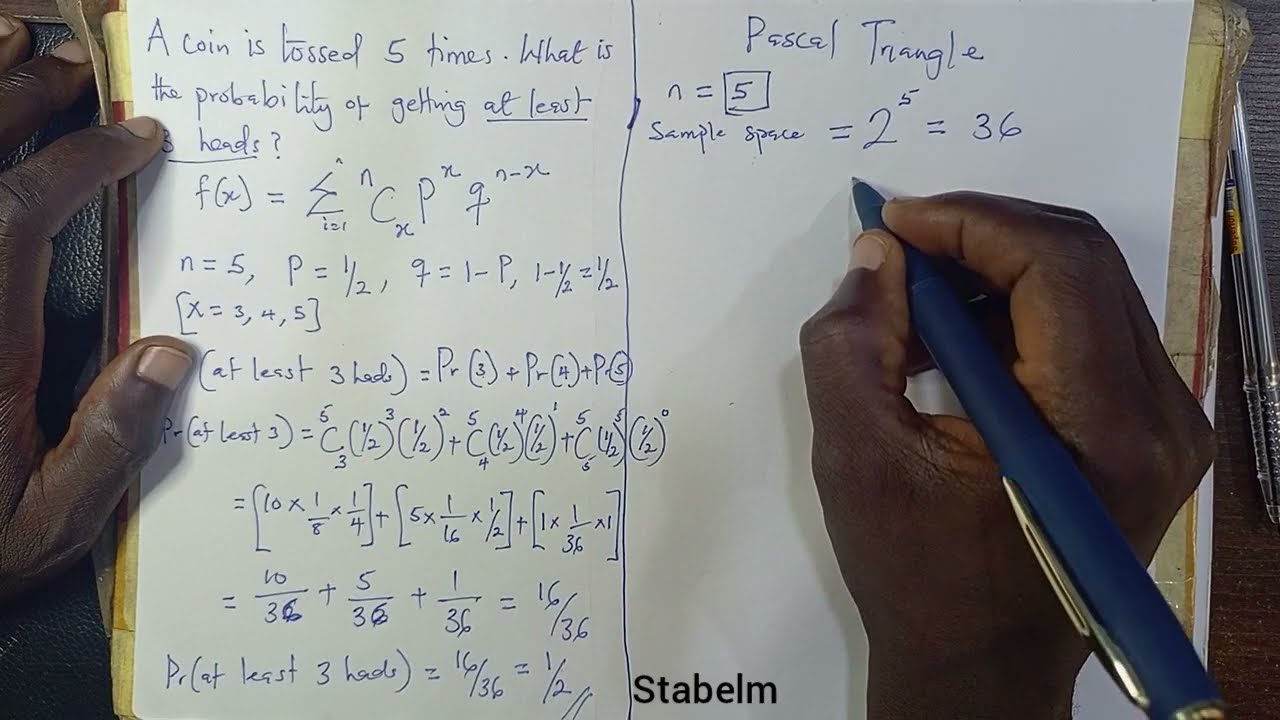 A coin is tossed 5 times. What is
the probability of getting at least
3 heads?
f(x) = Σ i=1 n nCx P^x q^n-x
n = 5, P = 1/2, q = 1 - P, 1 - 1/2 = 1/2
[x = 3, 4, 5]
(at least 3 heads) = Pr(3) + Pr(4) + Pr(5)
Pr(at least 3) = 5C3 (1/2)^3 (1/2)^2 + 5C4 (1/2)^4 (1/2)^1 + 5C5 (1/2)^5 (1/2)^0
= [10 × 1/8 × 1/4] + [5 × 1/16 × 1/2] + [1 × 1/36 × 1]
= 10/36 + 5/36 + 1/36 = 16/36
Pr(at least 3 heads) = 16/36 = 1/2
Pascal Triangle
n = 5
Sample space = 2^5 = 36
Stabelm